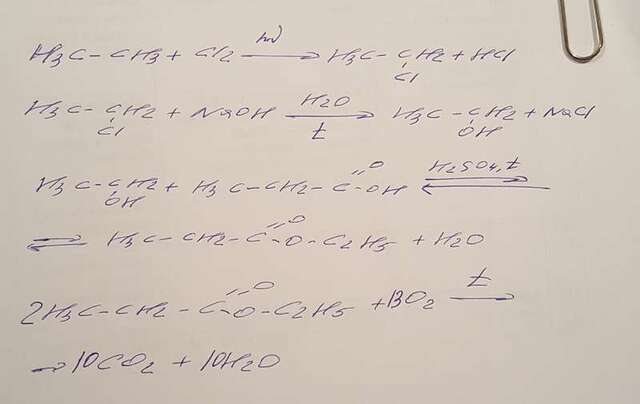 H3C-CH3 + Cl2 →(hν) H3C-CH2(Cl) + HCl
H3C-CH2(Cl) + NaOH →(H2O, t) H3C-CH2(OH) + NaCl
H3C-CH2(OH) + H3C-CH2-C(=O)OH ⇌(H2SO4, t)
⇌ H3C-CH2-C(=O)-O-C2H5 + H2O
2H3C-CH2-C(=O)-O-C2H5 + 13O2 →(t)
→ 10CO2 + 10H2O